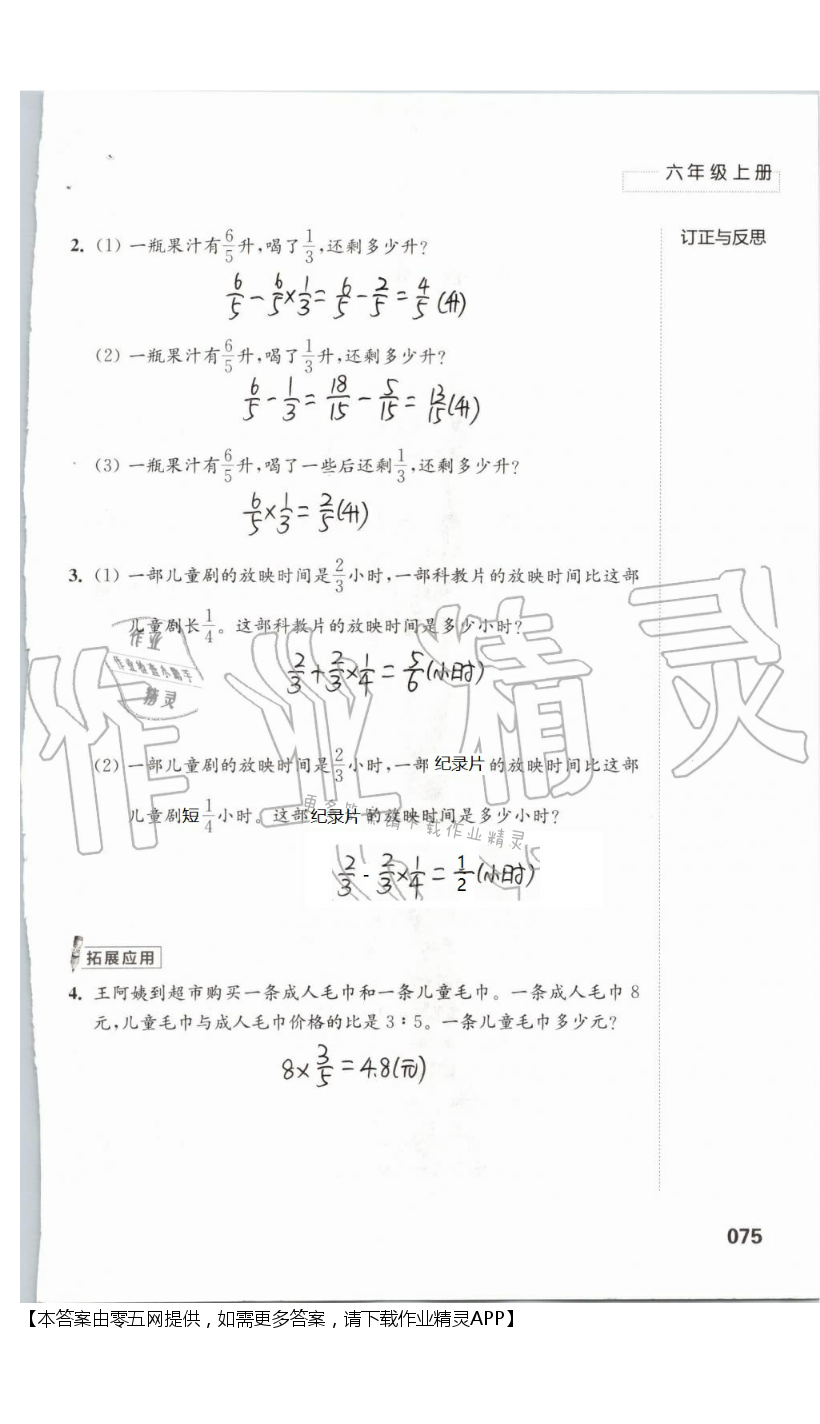 六年级上册
订正与反思
2. (1) 一瓶果汁有6/5升,喝了1/3,还剩多少升?
6/5-6/5×1/3=6/5-2/5=4/5(升)
(2) 一瓶果汁有6/5升,喝了1/3升,还剩多少升?
6/5-1/3=18/15-5/15=13/15(升)
(3) 一瓶果汁有6/5升,喝了一些后还剩1/3,还剩多少升?
6/5×1/3=2/5(升)
3. (1) 一部儿童剧的放映时间是2/3小时,一部科教片的放映时间比这部
儿童剧长1/4。这部科教片的放映时间是多少小时?
2/3+2/3×1/4=5/6(小时)
作业
作业检查小助手
精灵
作业精灵
(2) 一部儿童剧的放映时间是2/3小时,一部纪录片的放映时间比这部
儿童剧短1/4小时。这部纪录片的放映时间是多少小时?
更多答案请下载作业精灵
2/3-2/3×1/4=1/2(小时)
拓展应用
4. 王阿姨到超市购买一条成人毛巾和一条儿童毛巾。一条成人毛巾8
元,儿童毛巾与成人毛巾价格的比是3∶5。一条儿童毛巾多少元?
8×3/5=4.8(元)
075
【本答案由零五网提供，如需更多答案，请下载作业精灵APP】